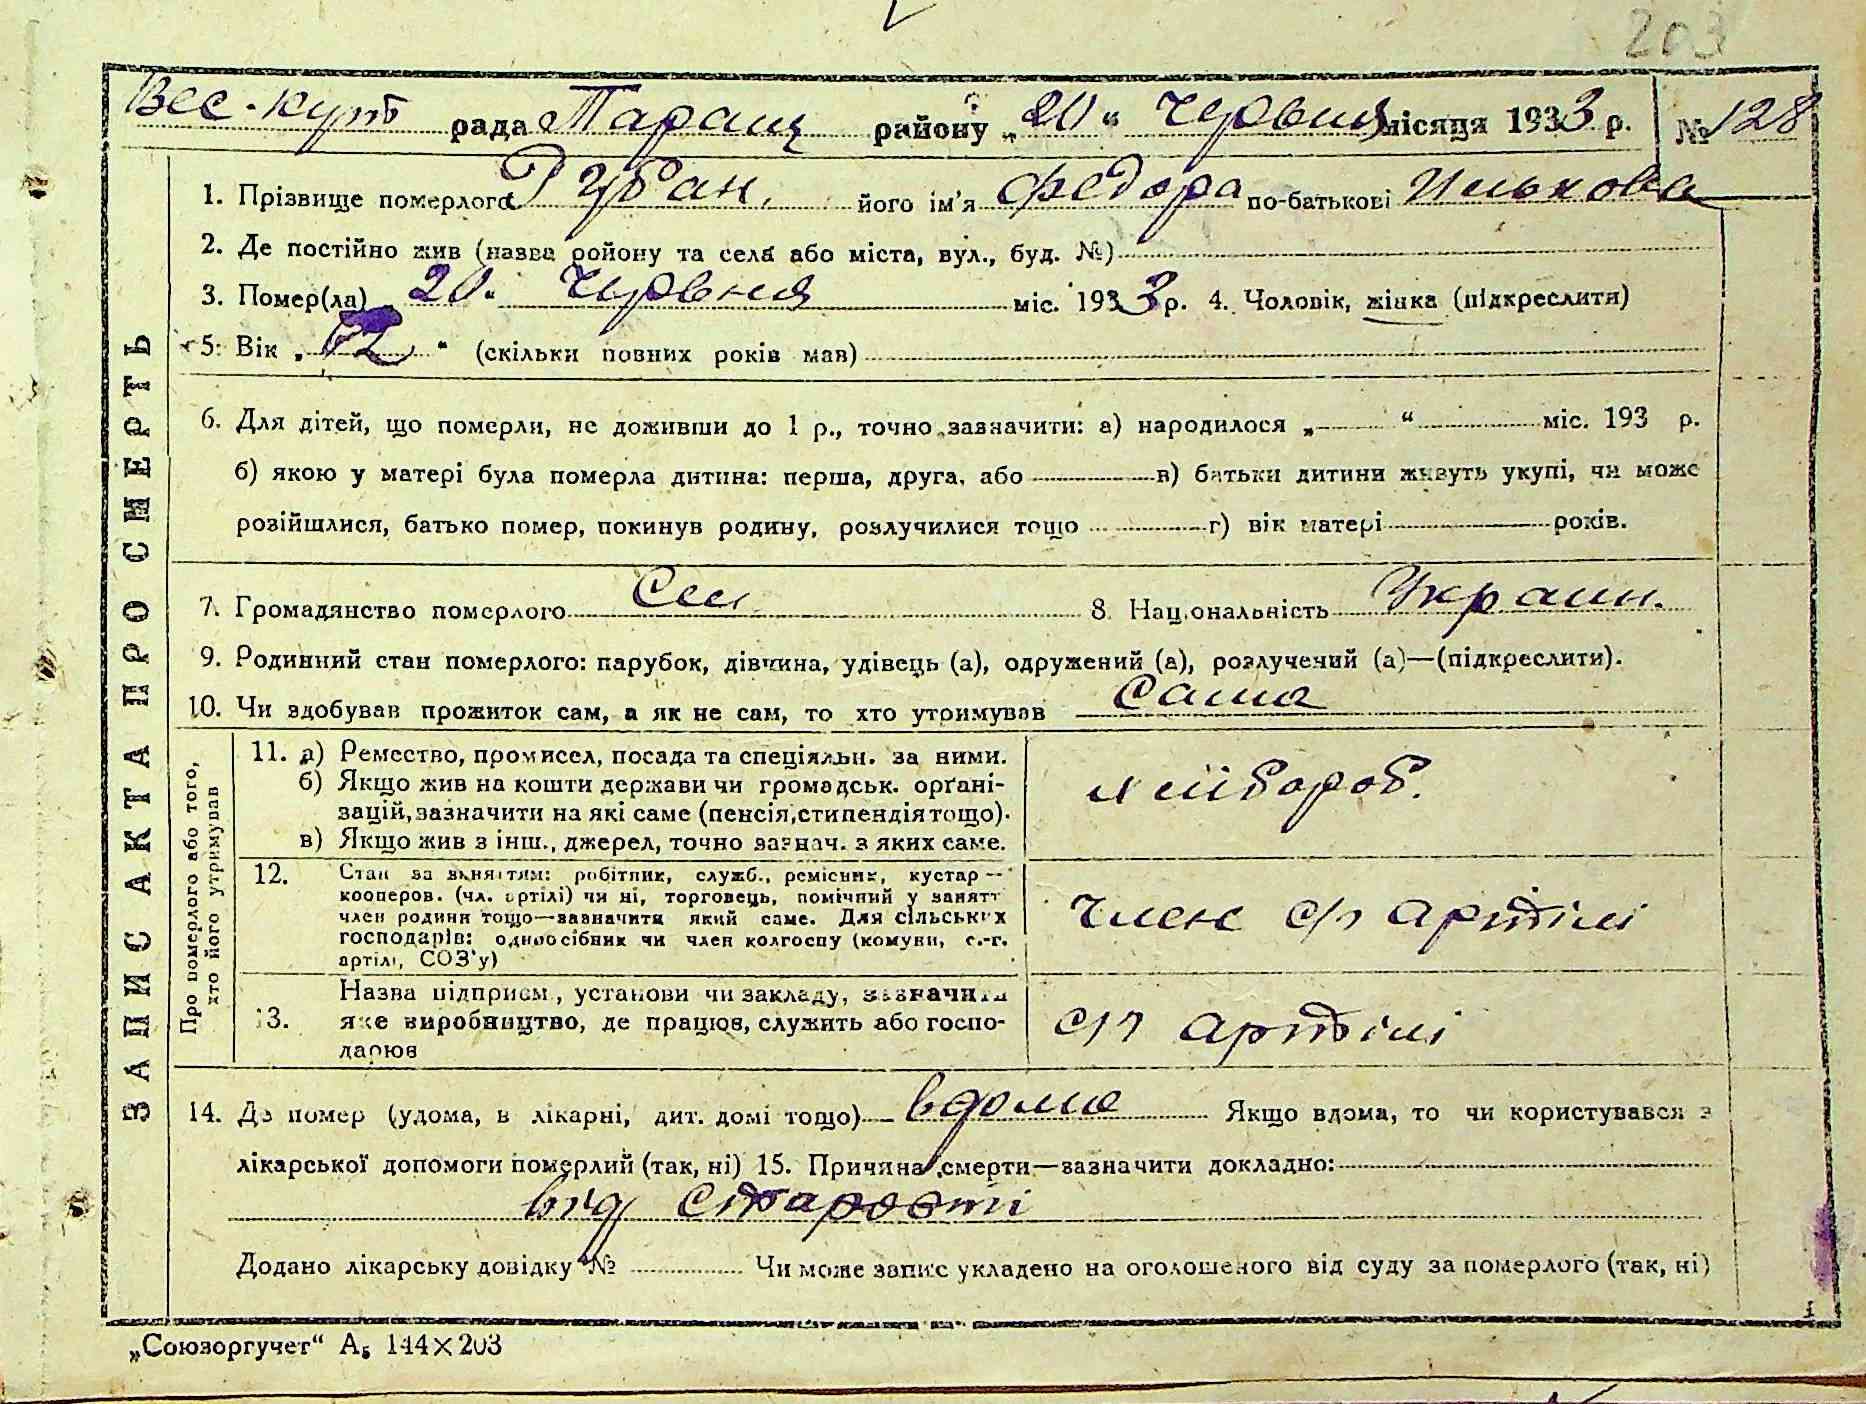 203
Вес-кут рада Таращ району „20“ Червня місяця 1933 р. № 128
1. Прізвище померлого Рубан його ім'я Федора по-батькові Илькова
2. Де постійно жив (назваройону та села або міста, вул., буд. №)
3. Помер(ла) 20 Червня міс. 1933 р. 4. Чоловік, жінка (підкреслити)
5. Вік „ “ (скільки повних років мав)
6. Для дітей, що померли, не доживши до 1 р., точно зазначити: а) народилося „ “ міс. 193 р.
б) якою у матері була померла дитина: перша, друга, або в) батьки дитини живуть укупі, чи може
розійшлися, батько помер, покинув родину, розлучилися тощо г) вік матері років.
7. Громадянство померлого 8. Національність Украин.
9. Родинний стан померлого: парубок, дівчина, удівець (а), одружений (а), розлучений (а)—(підкреслити).
10. Чи здобував прожиток сам, а як не сам, то хто утримував Сама
ЗАПИС АКТА ПРО СМЕРТЬ
Про померлого або того,
хто його утримував
11. а) Ремество, промисел, посада та спеціяльн. за ними.
б) Якщо жив на кошти держави чи громадськ. орґані-
зацій, зазначити на які саме (пенсія, стипендія тощо).
в) Якщо жив з інш., джерел, точно зазнач. з яких саме.
хлібороб.
12. Стан за заняттям: робітник, служб., ремісник, кустар—
кооперов. (чл. артілі) чи ні, торговець, помічний у занятт
член родини тощо—зазначити який саме. Для сільських
господарів: одноосібник чи член колгоспу (комуни, с.-г.
артілі, СОЗ'у)
Член с/г артілі
13. Назва підприєм., установи чи закладу, зазначити
яке виробництво, де працюв, служить або госпо-
дарюв
с/г артілі
14. Де помер (удома, в лікарні, дит. домі тощо) вдома Якщо вдома, то чи користувався з
лікарської допомоги померлий (так, ні) 15. Причина смерти—зазначити докладно:
від старости
Додано лікарську довідку № Чи може запис укладено на оголошеного від суду за померлого (так, ні)
„Союзоргучет“ А5 144×203